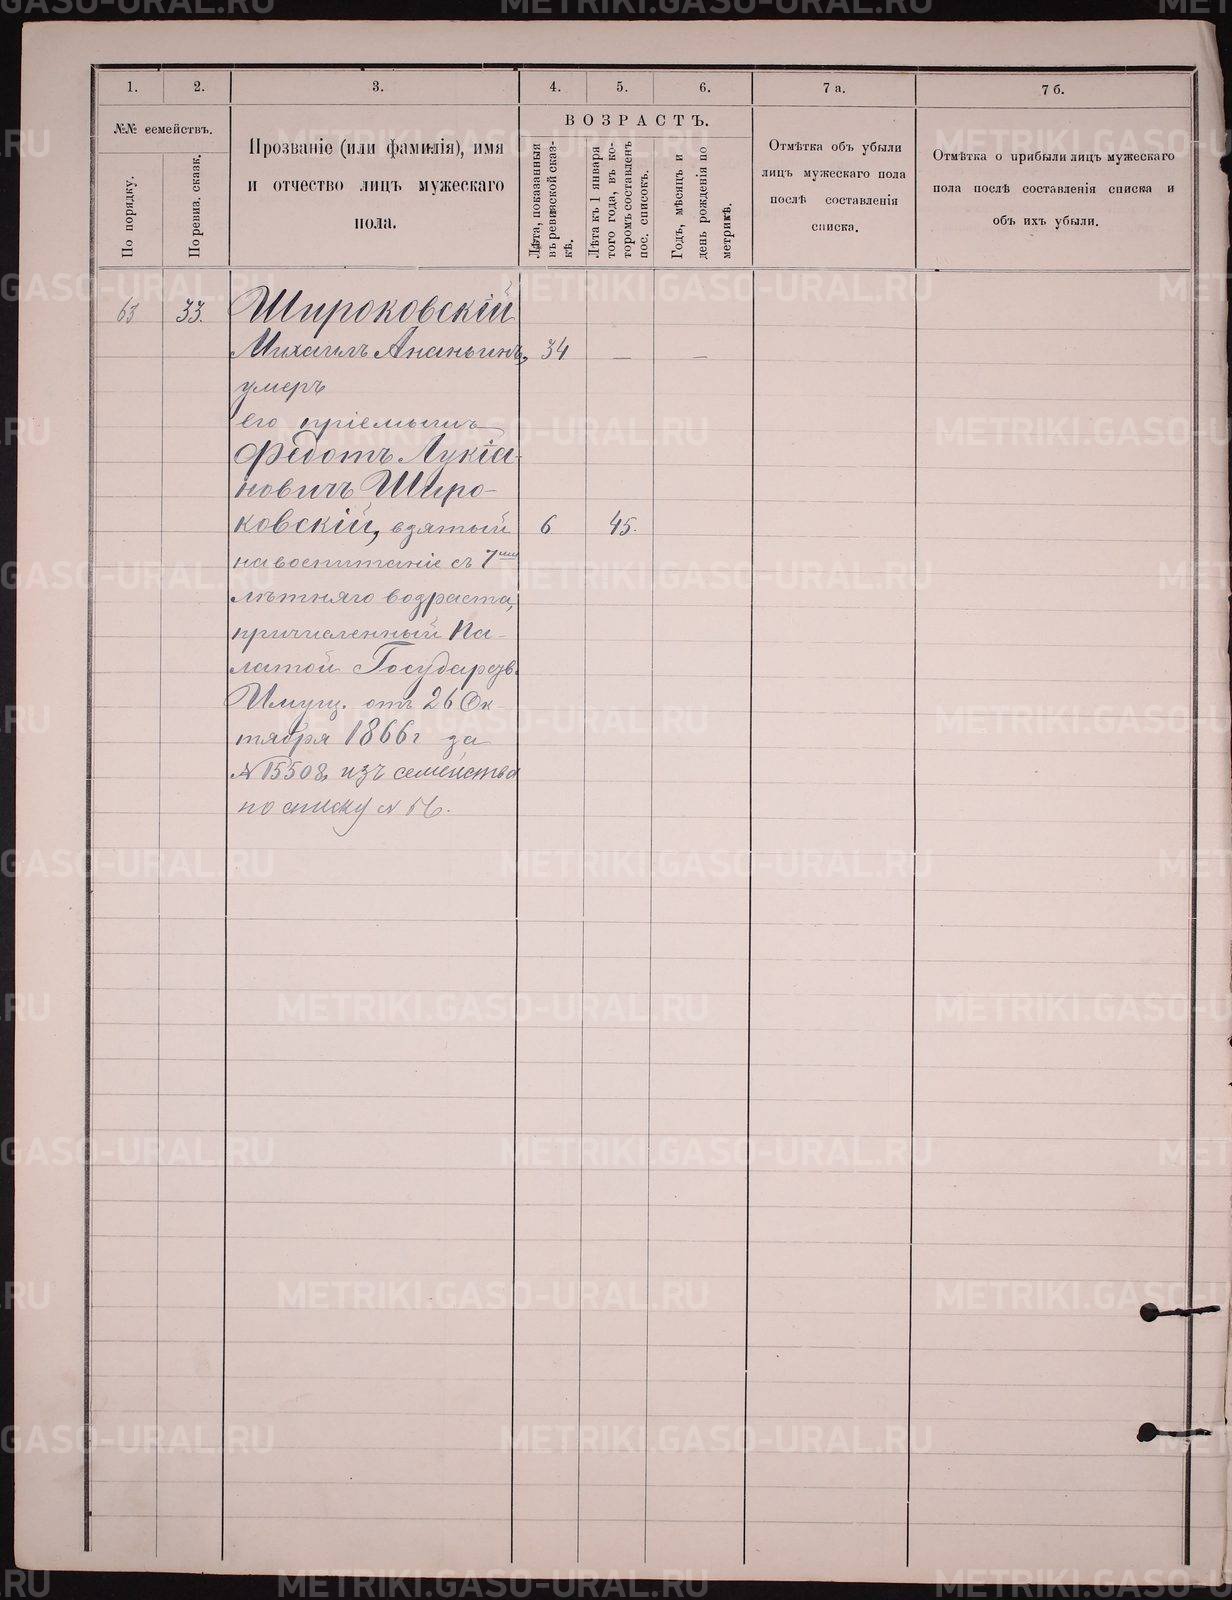 1.
2.
3.
4.
5.
6.
7 а.
7 б.
№№ семействъ.
По порядку.
По ревиз. сказк.
Прозваніе (или фамилія), имя
и отчество лицъ мужескаго
пола.
ВОЗРАСТЪ.
Лѣта, показанныя
въ ревизской сказ-
кѣ.
Лѣта къ 1 января
того года, въ ко-
торомъ составленъ
пос. списокъ.
Годъ, мѣсяцъ и
день рожденія по
метрикѣ.
Отмѣтка объ убыли
лицъ мужескаго пола
послѣ составленія
списка.
Отмѣтка о прибыли лицъ мужескаго
пола послѣ составленія списка и
объ ихъ убыли.
63 33. Широковскій
Михаилъ Ананьинъ, 34 — —
умеръ
его пріемышъ
Федотъ Лукіа-
новичъ Широ-
ковскій, взятый 6 45.
на воспитаніе съ 7ми
лѣтняго возраста,
причисленный Па-
латой Государств.
Имущ. отъ 26 Ок-
тября 1866 г за
№ 15508, изъ семейства
по списку №
METRIKI.GASO-URAL.RU